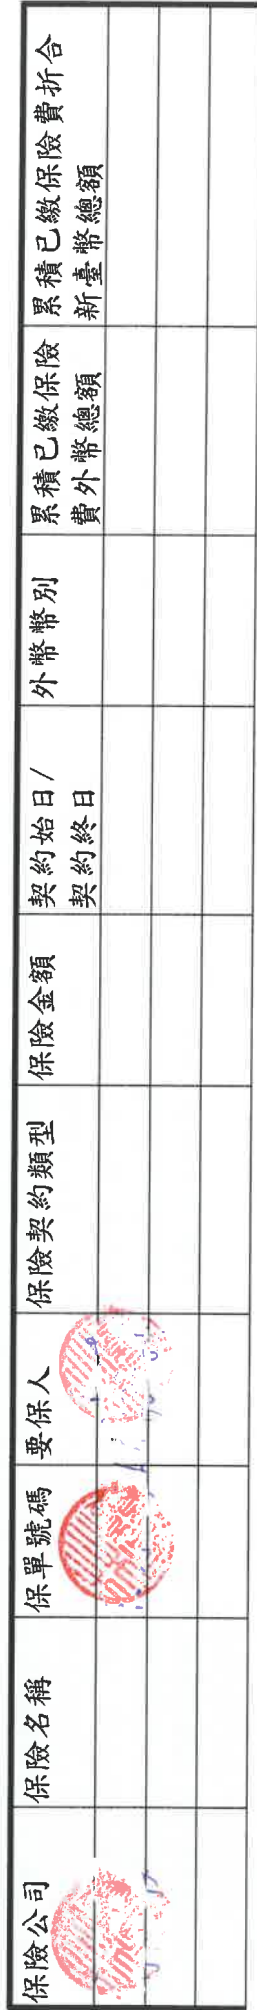 保險公司
保險名稱
保單號碼
要保人
保險契約類型
保險金額
契約始日/
契約終日
外幣幣別
累積已繳保險
費外幣總額
累積已繳保險費折合
新臺幣總額